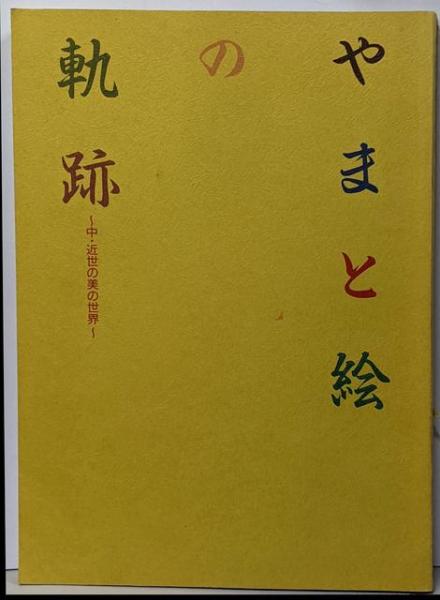 やまと絵
の
軌跡
～中・近世の美の世界～